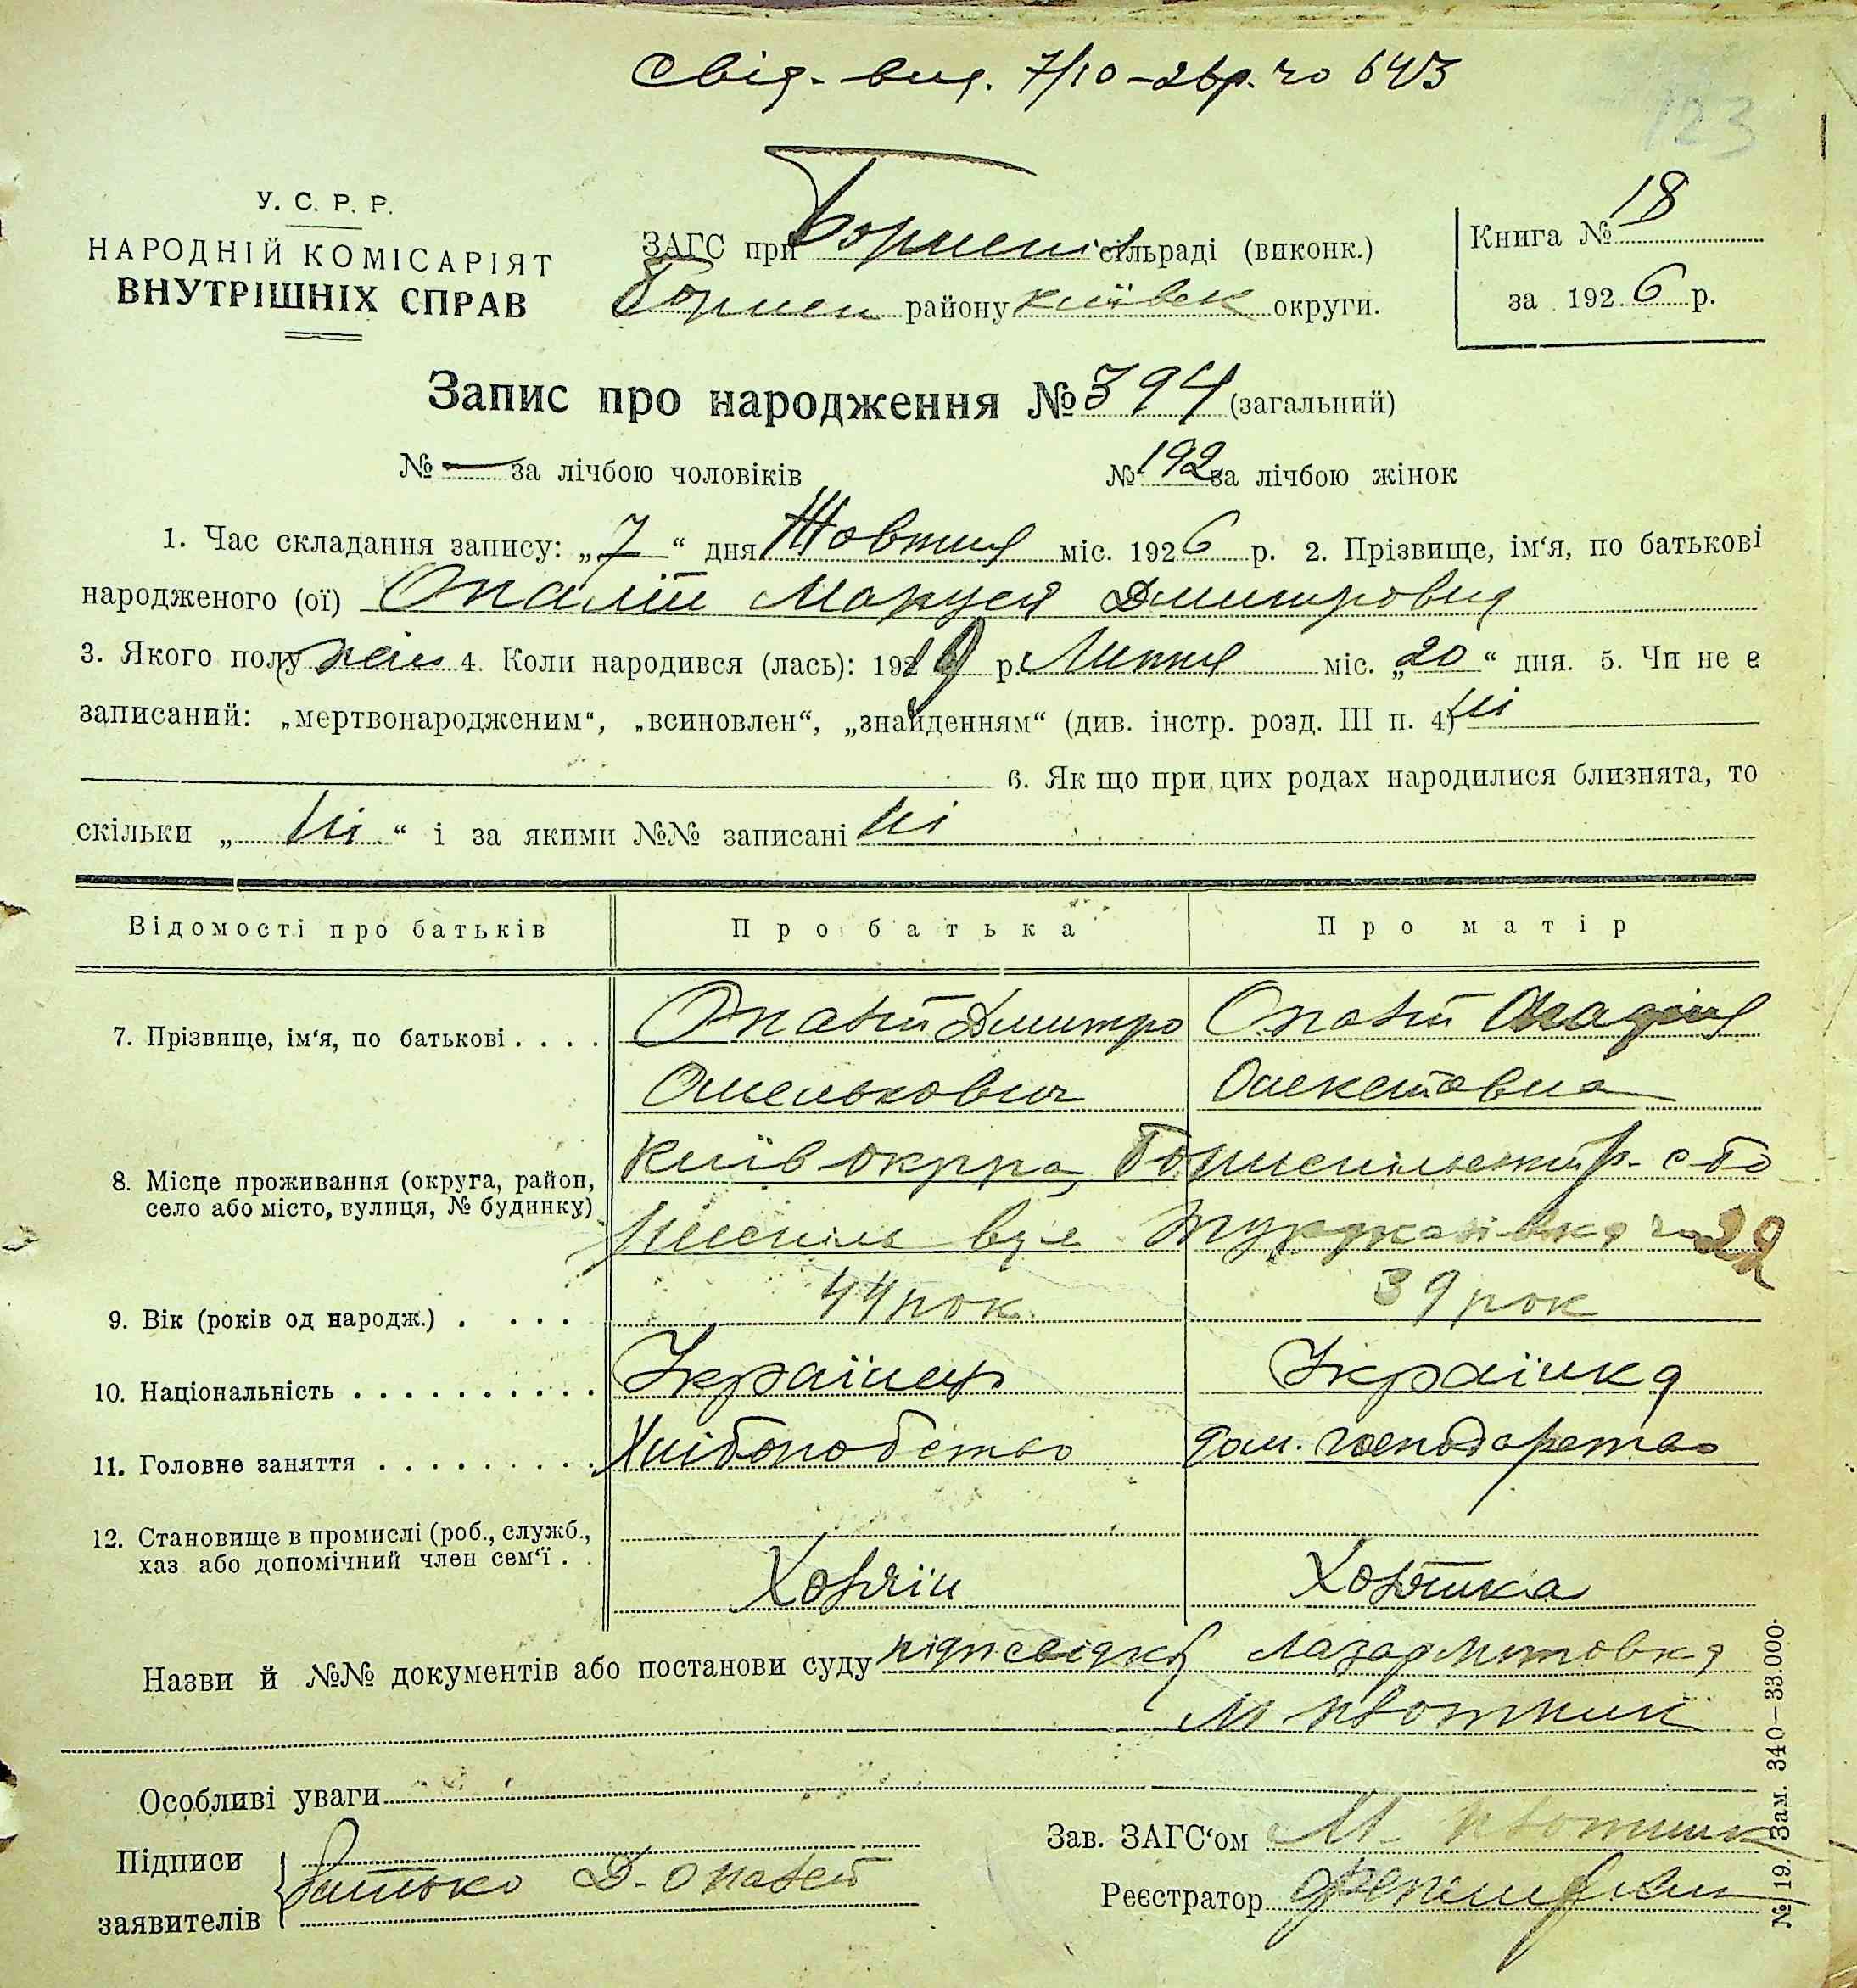 Свід. вид. 7/10-26р. № 643
123
У. С. Р. Р.
НАРОДНІЙ КОМІСАРІЯТ
ВНУТРІШНІХ СПРАВ
ЗАГС при Борисп. сільраді (виконк.)
Борисп району Київськ округи.
Книга № 18
за 1926 р.
Запис про народження № 394 (загальний)
№ — за лічбою чоловіків
№ 192 за лічбою жінок
1. Час складання запису: „7“ дня Жовтня міс. 1926 р. 2. Прізвище, ім‘я, по батькові
народженого (ої) Опалій Маруся Дмитровна
3. Якого полу жін 4. Коли народився (лась): 1919 р. Липня міс. „20“ дня. 5. Чи не є
записаний: „мертвонародженим“, „всиновлен“, „знайденням“ (див. інстр. розд. III п. 4) Ні
6. Як що при цих родах народилися близнята, то
скільки „Ні“ і за якими №№ записані Ні
Відомості про батьків
Про батька
Про матір
7. Прізвище, ім‘я, по батькові . . . .
Опалій Дмитро
Омелькович
Опалій
8. Місце проживання (округа, район,
село або місто, вулиця, № будинку)
Київ округа, Бориспільський р. с Бо
риспіль вул № 22
9. Вік (років од народж.) . . . .
44 рок.
39 рок
10. Національність . . . . . . . . . . .
Українець
Українка
11. Головне заняття . . . . . . . . .
Хліборобство
дом. господарство
12. Становище в промислі (роб., служб.,
хаз або допомічний член сем‘ї . .
Хозяїн
Хозяйка
Назви й №№ документів або постанови суду підписка
М Квотник
Особливі уваги
Підписи
заявителів
Батько Д. Опалей
Зав. ЗАГС‘ом М.
Реєстратор
№ 19. Зам. 340—33.000.